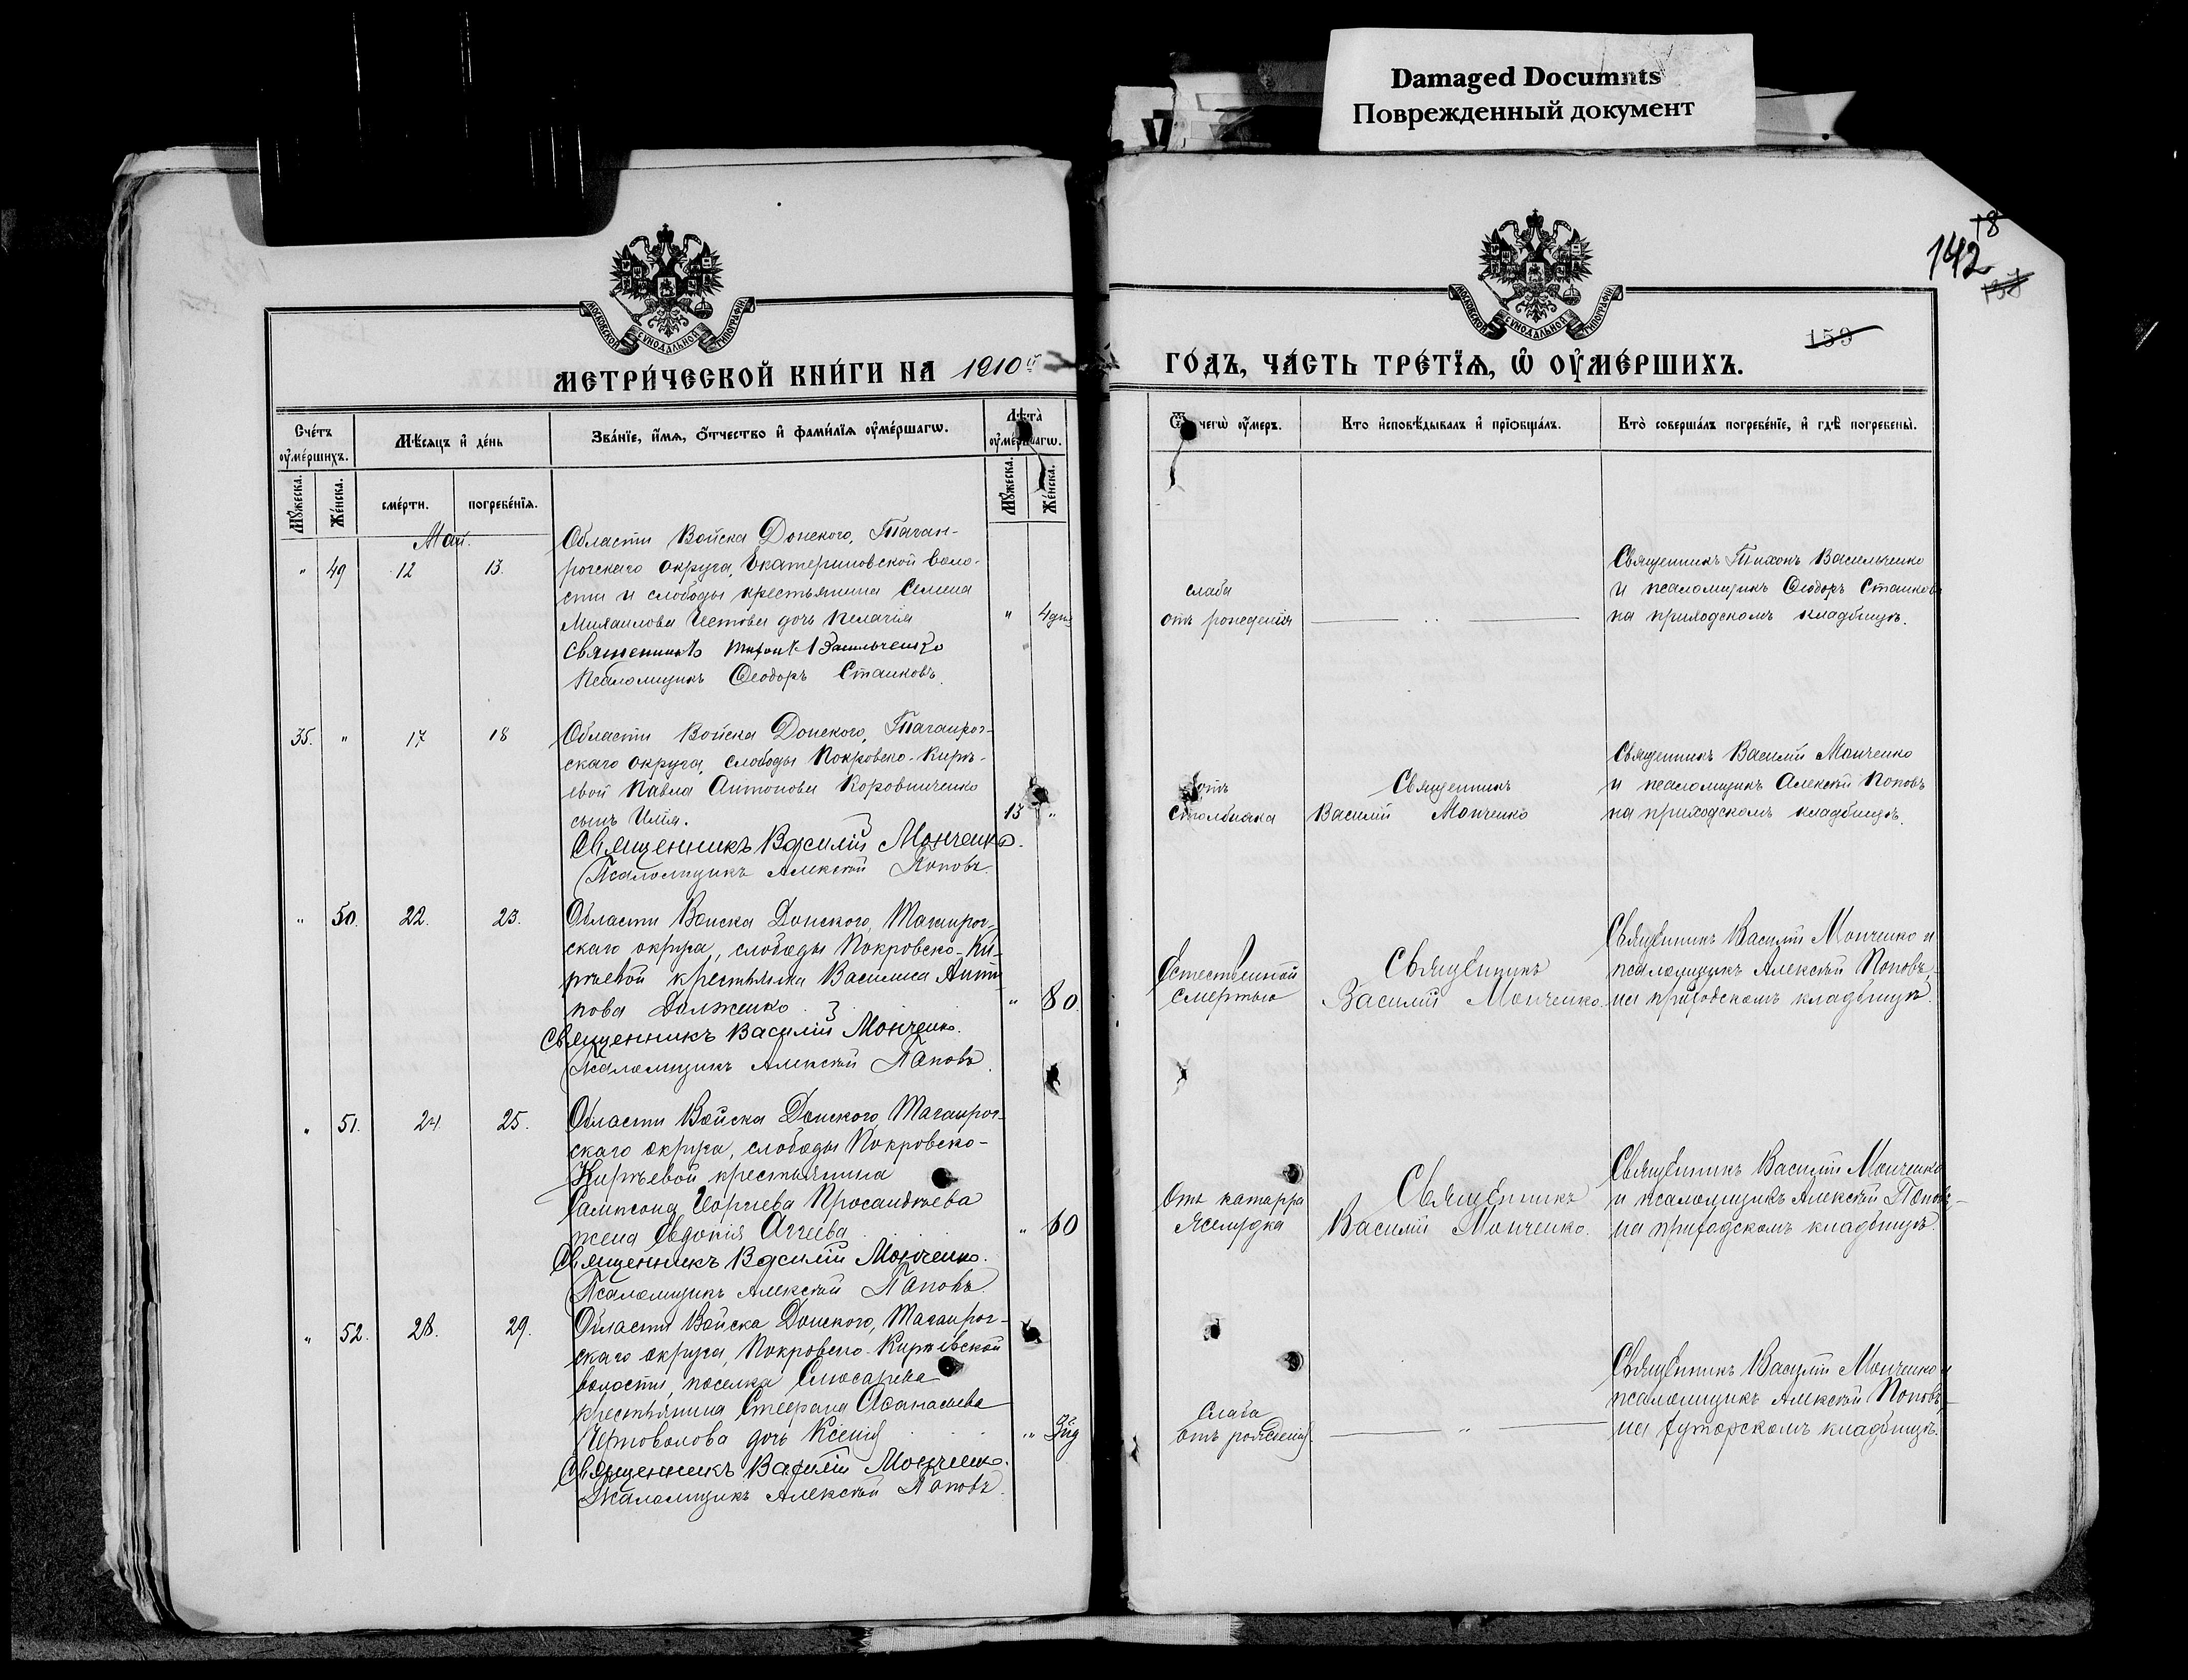 Damaged Documnts
Поврежденный документ
18
142
159
МОСКОВСКОЙ СѴНОДАЛЬНОЙ ТИПОГРАФІИ
МОСКОВСКОЙ СѴНОДАЛЬНОЙ ТИПОГРАФІИ
МЕТРИ́ЧЕСКОЙ КНИ́ГИ НА 1910й
ГО́ДЪ, ЧА́СТЬ ТРЕ́ТЇѦ, Ѡ҆ ОУ҆МЕ́РШИХЪ.
Сче́тъ оу҆ме́ршихъ.
Мѣ́сѧцъ и҆ де́нь
Зва́нїе, и҆́мѧ, ѻ҆́тчество и҆ фами́лїѧ оу҆ме́ршагѡ.
Лѣ́та оу҆ме́ршагѡ.
Ѿ чегѡ̀ оу҆́мер.
Кто̀ и҆сповѣ́дывалъ и҆ прїѡбща́лъ.
Кто̀ соверша́лъ погребе́нїе, и҆ гдѣ̀ погребены̀.
Мꙋ́жеска.
Же́нска.
сме́рти.
погребе́нїѧ.
Мꙋ́жеска.
Же́нска.
Май.
" 49 12 13.
Области Войска Донского, Таган-
рогскаго округа, Екатериновской воло-
сти и слободы крестьянина Семена
Михаилова дочь Пелагія " 4 дн.
Священникъ Тихонъ Васильченко
Псаломщикъ Ѳеодоръ Станковъ.
слаба
отъ рожденія
Священникъ Тихонъ Васильченко
и псаломщикъ Ѳеодоръ Станковъ
на приходскомъ кладбищѣ.
35. " 17 18
Области Войска Донского, Таганрог-
скаго округа, слободы Покровско-Кирѣ-
евой Павла Антонова Коровниченко
сынъ Илія. 13 "
Священникъ Василій Монченко.
Псаломщикъ Алексѣй Поповъ.
отъ
столбняка
Священникъ
Василій Монченко
Священникъ Василій Монченко
и псаломщикъ Алексѣй Поповъ
на приходскомъ кладбищѣ.
" 50. 22. 23.
Области Войска Донского, Таганрог-
скаго округа, слободы Покровско-Ки-
рѣевой крестьянка Василиса Анти
пова Долженко " 80.
Священникъ Василій Монченко.
Псаломщикъ Алексѣй Поповъ.
Естественной
смертью
Священникъ
Василій Монченко.
Священникъ Василій Монченко и
псаломщикъ Алексѣй Поповъ,
на приходскомъ кладбищѣ.
" 51. 24. 25.
Области Войска Донского, Таганрог-
скаго округа, слободы Покровско-
Кирѣевой крестьянина
Сампсона Просандѣева
жена Евдокія Аггеева " 60
Священникъ Василій Монченко.
Псаломщикъ Алексѣй Поповъ.
Отъ катарра
желудка
Священникъ
Василій Монченко.
Священникъ Василій Монченко
и псаломщикъ Алексѣй Поповъ
на приходскомъ кладбищѣ.
" 52. 28. 29.
Области Войска Донского, Таганрог-
скаго округа, Покровско-Кирѣевской
волости, поселка Слюсарева
крестьянина Стефана Аѳанасьева
Чертоволова дочь Ксенія "
Священникъ Василій Монченко.
Псаломщикъ Алексѣй Поповъ.
Слаба
отъ рожденія.
Священникъ Василій Монченко и
псаломщикъ Алексѣй Поповъ,
на хуторскомъ кладбищѣ.